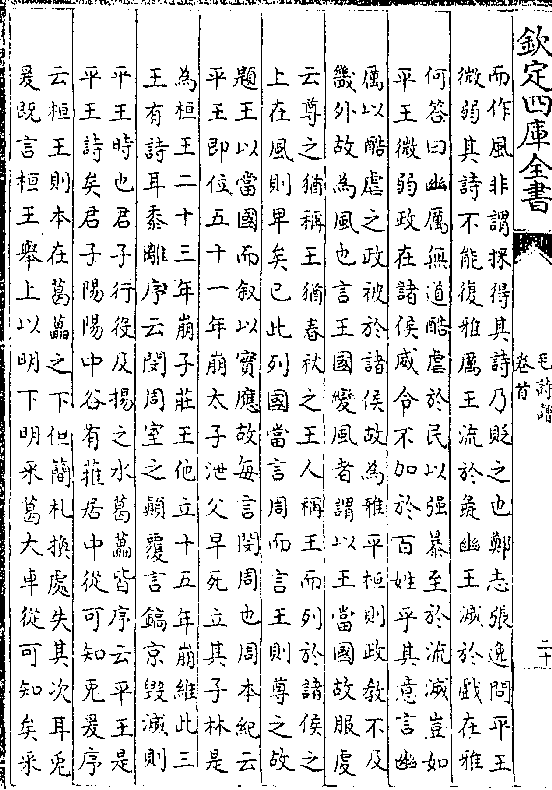 欽定四庫全書
毛詩譜
卷首
二十
而作風非謂採得其詩乃貶之也鄭志張逸問平王
微弱其詩不能復雅厲王流於彘幽王滅於戲在雅
何答曰幽厲無道酷虐於民以强暴至於流滅豈如
平王微弱政在諸侯威令不加於百姓乎其意言幽
厲以酷虐之政被於諸侯故為雅平桓則政教不及
畿外故為風也言王國變風者謂以王當國故服虔
云尊之猶稱王猶春秋之王人稱王而列於諸侯之
上在風則卑矣已此列國當言周而言王則尊之故
題王以當國而叙以實應故每言閔周也周本紀云
平王即位五十一年崩太子泄父早死立其子林是
為桓王二十三年崩子莊王他立十五年崩維此三
王有詩耳黍離序云閔周室之顛覆言鎬京毁滅則
平王時也君子行役及揚之水葛藟皆序云平王是
平王詩矣君子陽陽中谷有蓷居中從可知兎爰序
云桓王則本在葛藟之下但簡札換處失其次耳兎
爰既言桓王舉上以明下明采葛大車從可知矣采